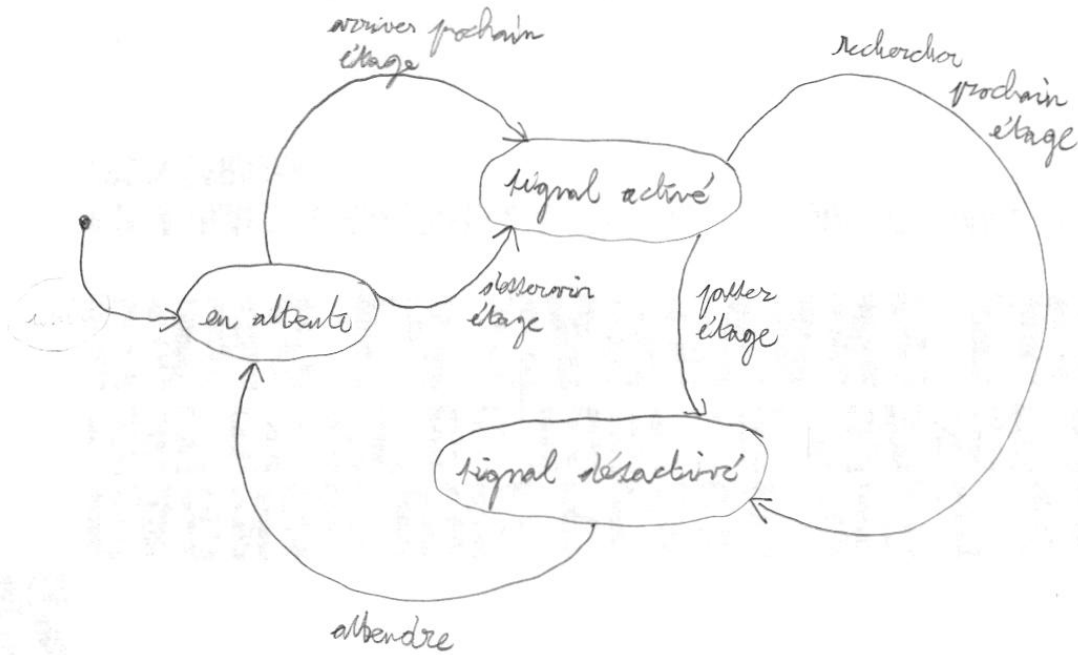 arriver prochain
étage
rechercher
prochain
étage
signal activé
en attente
desservir
étage
passer
étage
signal désactivé
attendre